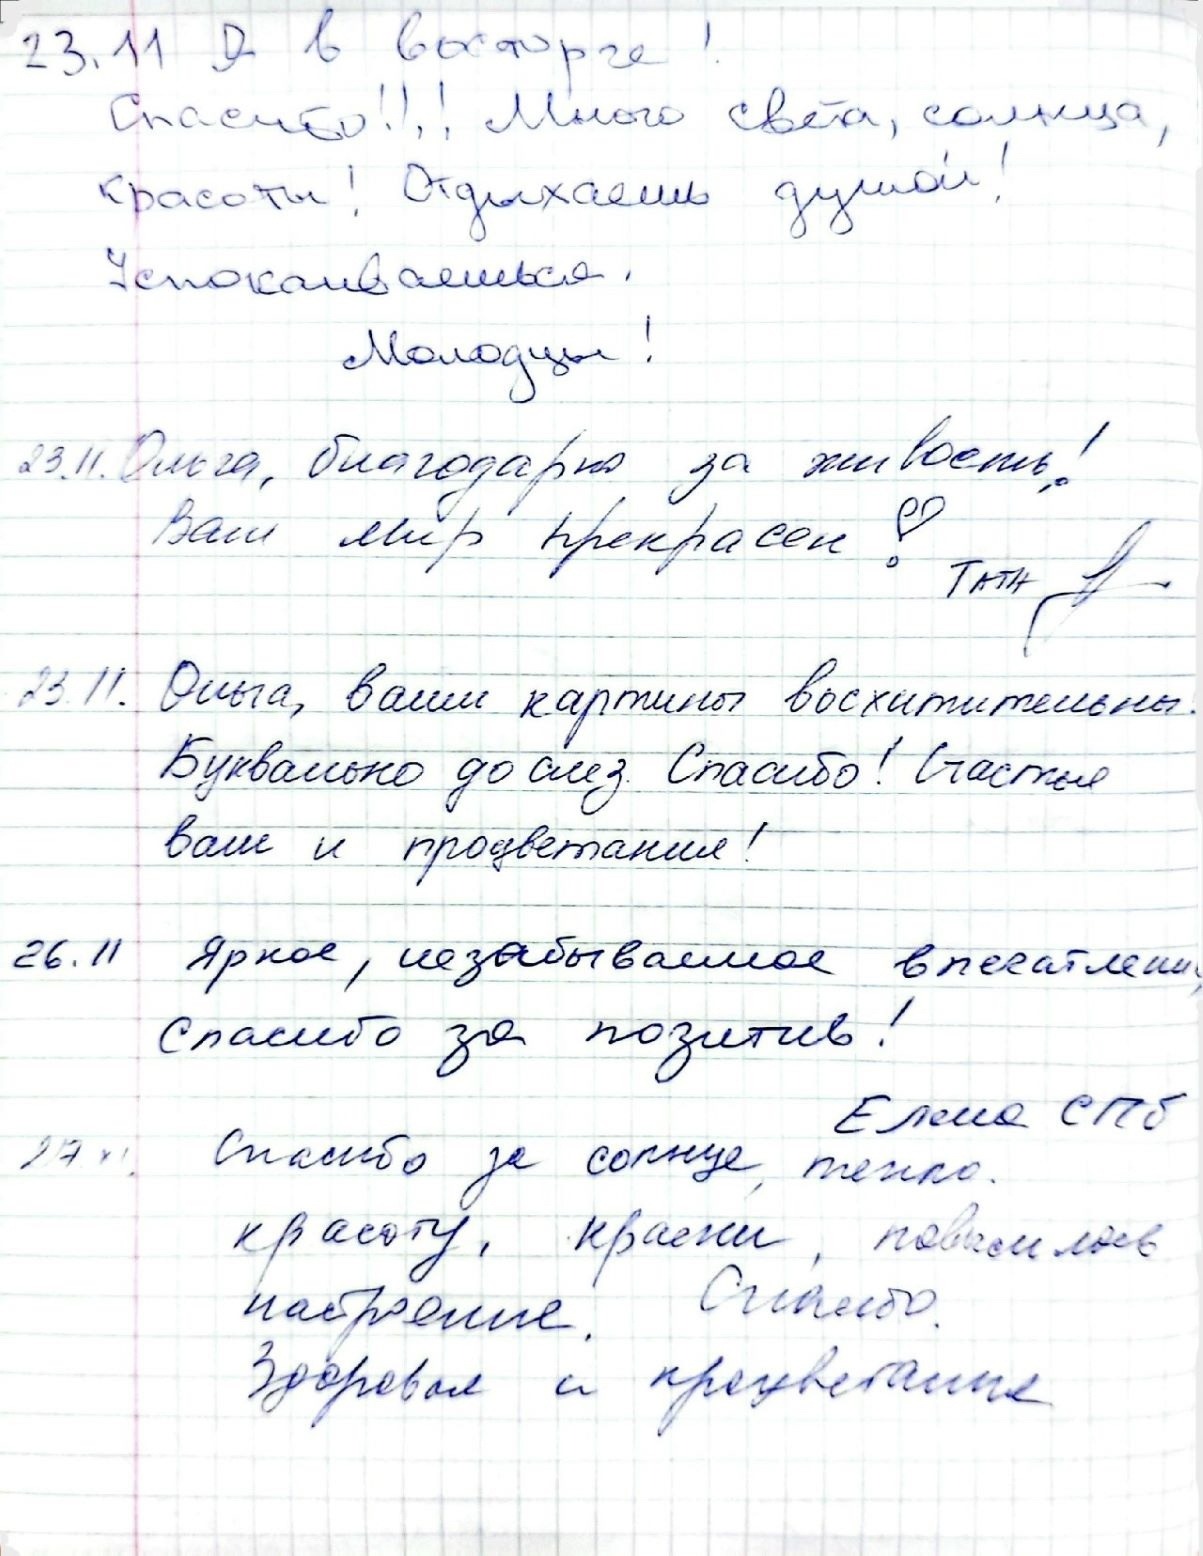 23.11 Я в восторге!
Спасибо!!,! Много света, солнца,
красоты! Отдыхаешь душой!
Успокаиваешься.
Молодцы!
23.11. Ольга, благодарю за живость!
Ваш мир прекрасен!
Тата
23.11. Ольга, ваши картины восхитительны.
Буквально до слез. Спасибо! Счастья
вам и процветания!
26.11 Яркое, незабываемое впечатление,
Спасибо за позитив!
Елена СПб
27 XI. Спасибо за солнце, тепло.
красоту, краски, повысилось
настроение. Спасибо.
Здоровья и процветания